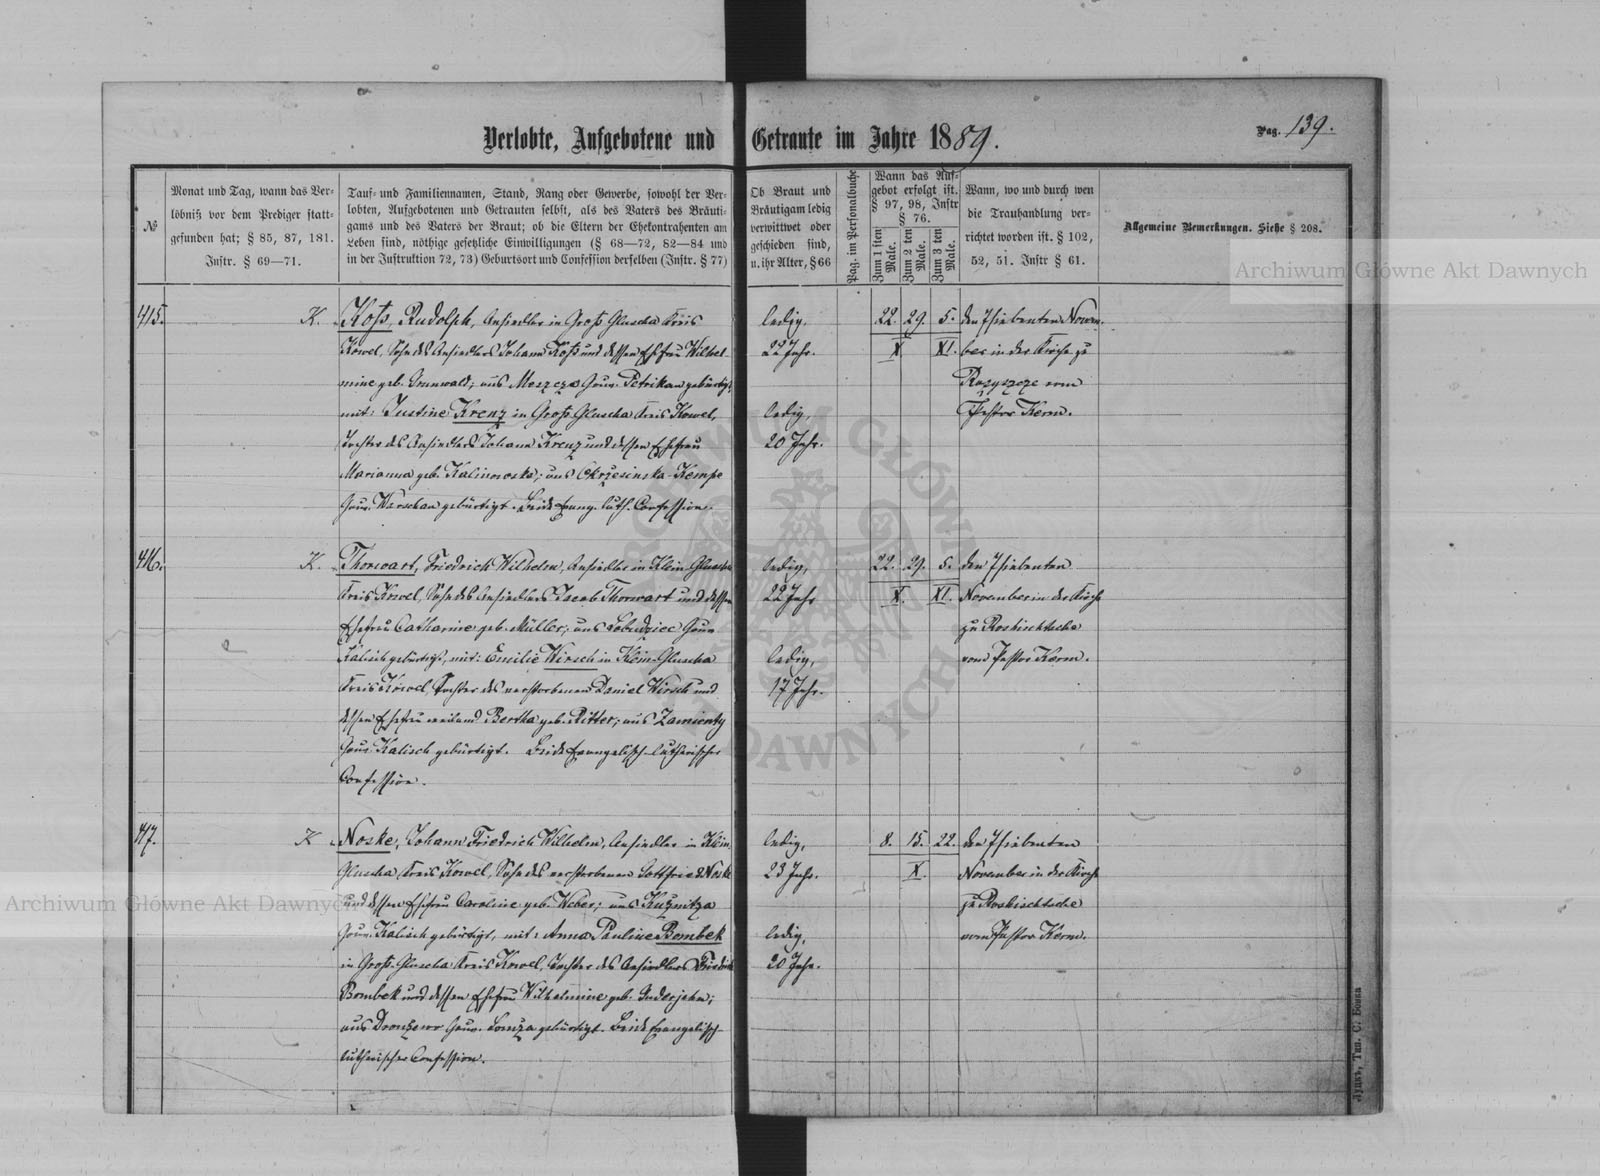 Verlobte, Aufgebotene und Getraute im Jahre 1889.
Pag. 139.
№
Monat und Tag, wann das Ver-
löbniß vor dem Prediger statt-
gefunden hat; § 85, 87, 181.
Instr. § 69—71.
Tauf- und Familiennamen, Stand, Rang oder Gewerbe, sowohl der Ver-
lobten, Aufgebotenen und Getrauten selbst, als des Vaters des Bräuti-
gams und des Vaters der Braut; ob die Eltern der Ehekontrahenten am
Leben sind, nöthige gesetzliche Einwilligungen (§ 68—72, 82—84 und
in der Instruktion 72, 73) Geburtsort und Confession derselben (Instr. § 77)
Ob Braut und
Bräutigam ledig
verwittwet oder
geschieden sind,
u. ihr Alter, § 66
Pag. im Personalbuche
Wann das Auf-
gebot erfolgt ist.
§ 97, 98, Instr
§ 76.
Zum 1 sten
Male.
Zum 2 ten
Male.
Zum 3 ten
Male.
Wann, wo und durch wen
die Trauhandlung ver-
richtet worden ist. § 102,
52, 51. Instr § 61.
Allgemeine Bemerkungen. Siehe § 208.
Archiwum Główne Akt Dawnych
415.
K.
Koß, Rudolph, Ansiedler in Groß Gluscha Kreis
Kowel, Sohn des Ansiedlers Johann Koß und dessen Ehefrau Wilhel-
mine geb. Grunwald; aus Moszcze Gouv. Petrikau gebürtig,
mit: Justine Krenz in Groß Gluscha Kreis Kowel,
Tochter des Ansiedlers Johann Krenz und dessen Ehefrau
Marianna geb. Kalinowska; aus Okrzesinska-Kempe
Gouv. Warschau gebürtigt. Beide Evang. luth. Confession.
ledig.
22 Jahr.
ledig,
20 Jahr.
22. 29. 5.
X XI.
den 7 siebenten Novem-
ber in der Kirche zu
Rozyszcze vom
Pastor Kerm.
416.
K.
Thorwart, Friedrich Wilhelm, Ansiedler in Klein-Gluscha
Kreis Kowel, Sohn des Ansiedlers Jacob Thorwart und dessen
Ehefrau Catharine geb. Müller; aus Lobudziec Gouv
Kalisch gebürtigt, mit: Emilie Wirsch in Klein-Gluscha
Kreis Kowel, Tochter des verstorbenen Daniel Wirsch und
dessen Ehefrau weiland Bertha geb. Ritter; aus Zamienty
Gouv. Kalisch gebürtigt. Beide Evangelisch-lutherischer
Confession.
ledig,
22 Jahr
ledig,
17 Jahr.
22. 29. 5.
X. XI.
den 7 siebenten
November in der Kirche
zu Roshischtsche
vom Pastor Kerm.
417.
K
Noske, Johann Friedrich Wilhelm, Ansiedler in Klein-
Gluscha, Kreis Kowel, Sohn des verstorbenen Gottfried Noske
und dessen Ehefrau Caroline geb. Weber; aus Kuznitza
Gouv. Kalisch gebürtigt, mit: Anna Pauline Bombek
in Groß-Gluscha Kreis Kowel, Tochter des Ansiedlers Friedrich
Bombek und dessen Ehefrau Wilhelmine geb. Guderjahn;
aus Gouv. Lomza gebürtigt. Beide Evangelisch
lutherischer Confession.
ledig,
23 Jahr.
ledig,
20 Jahr.
8. 15. 22.
X.
den 7 siebenten
November in der Kirche
zu Roshischtsche
vom Pastor Kerm.
Archiwum Główne Akt Dawnych
Луцкъ, Тип. С. Бокка